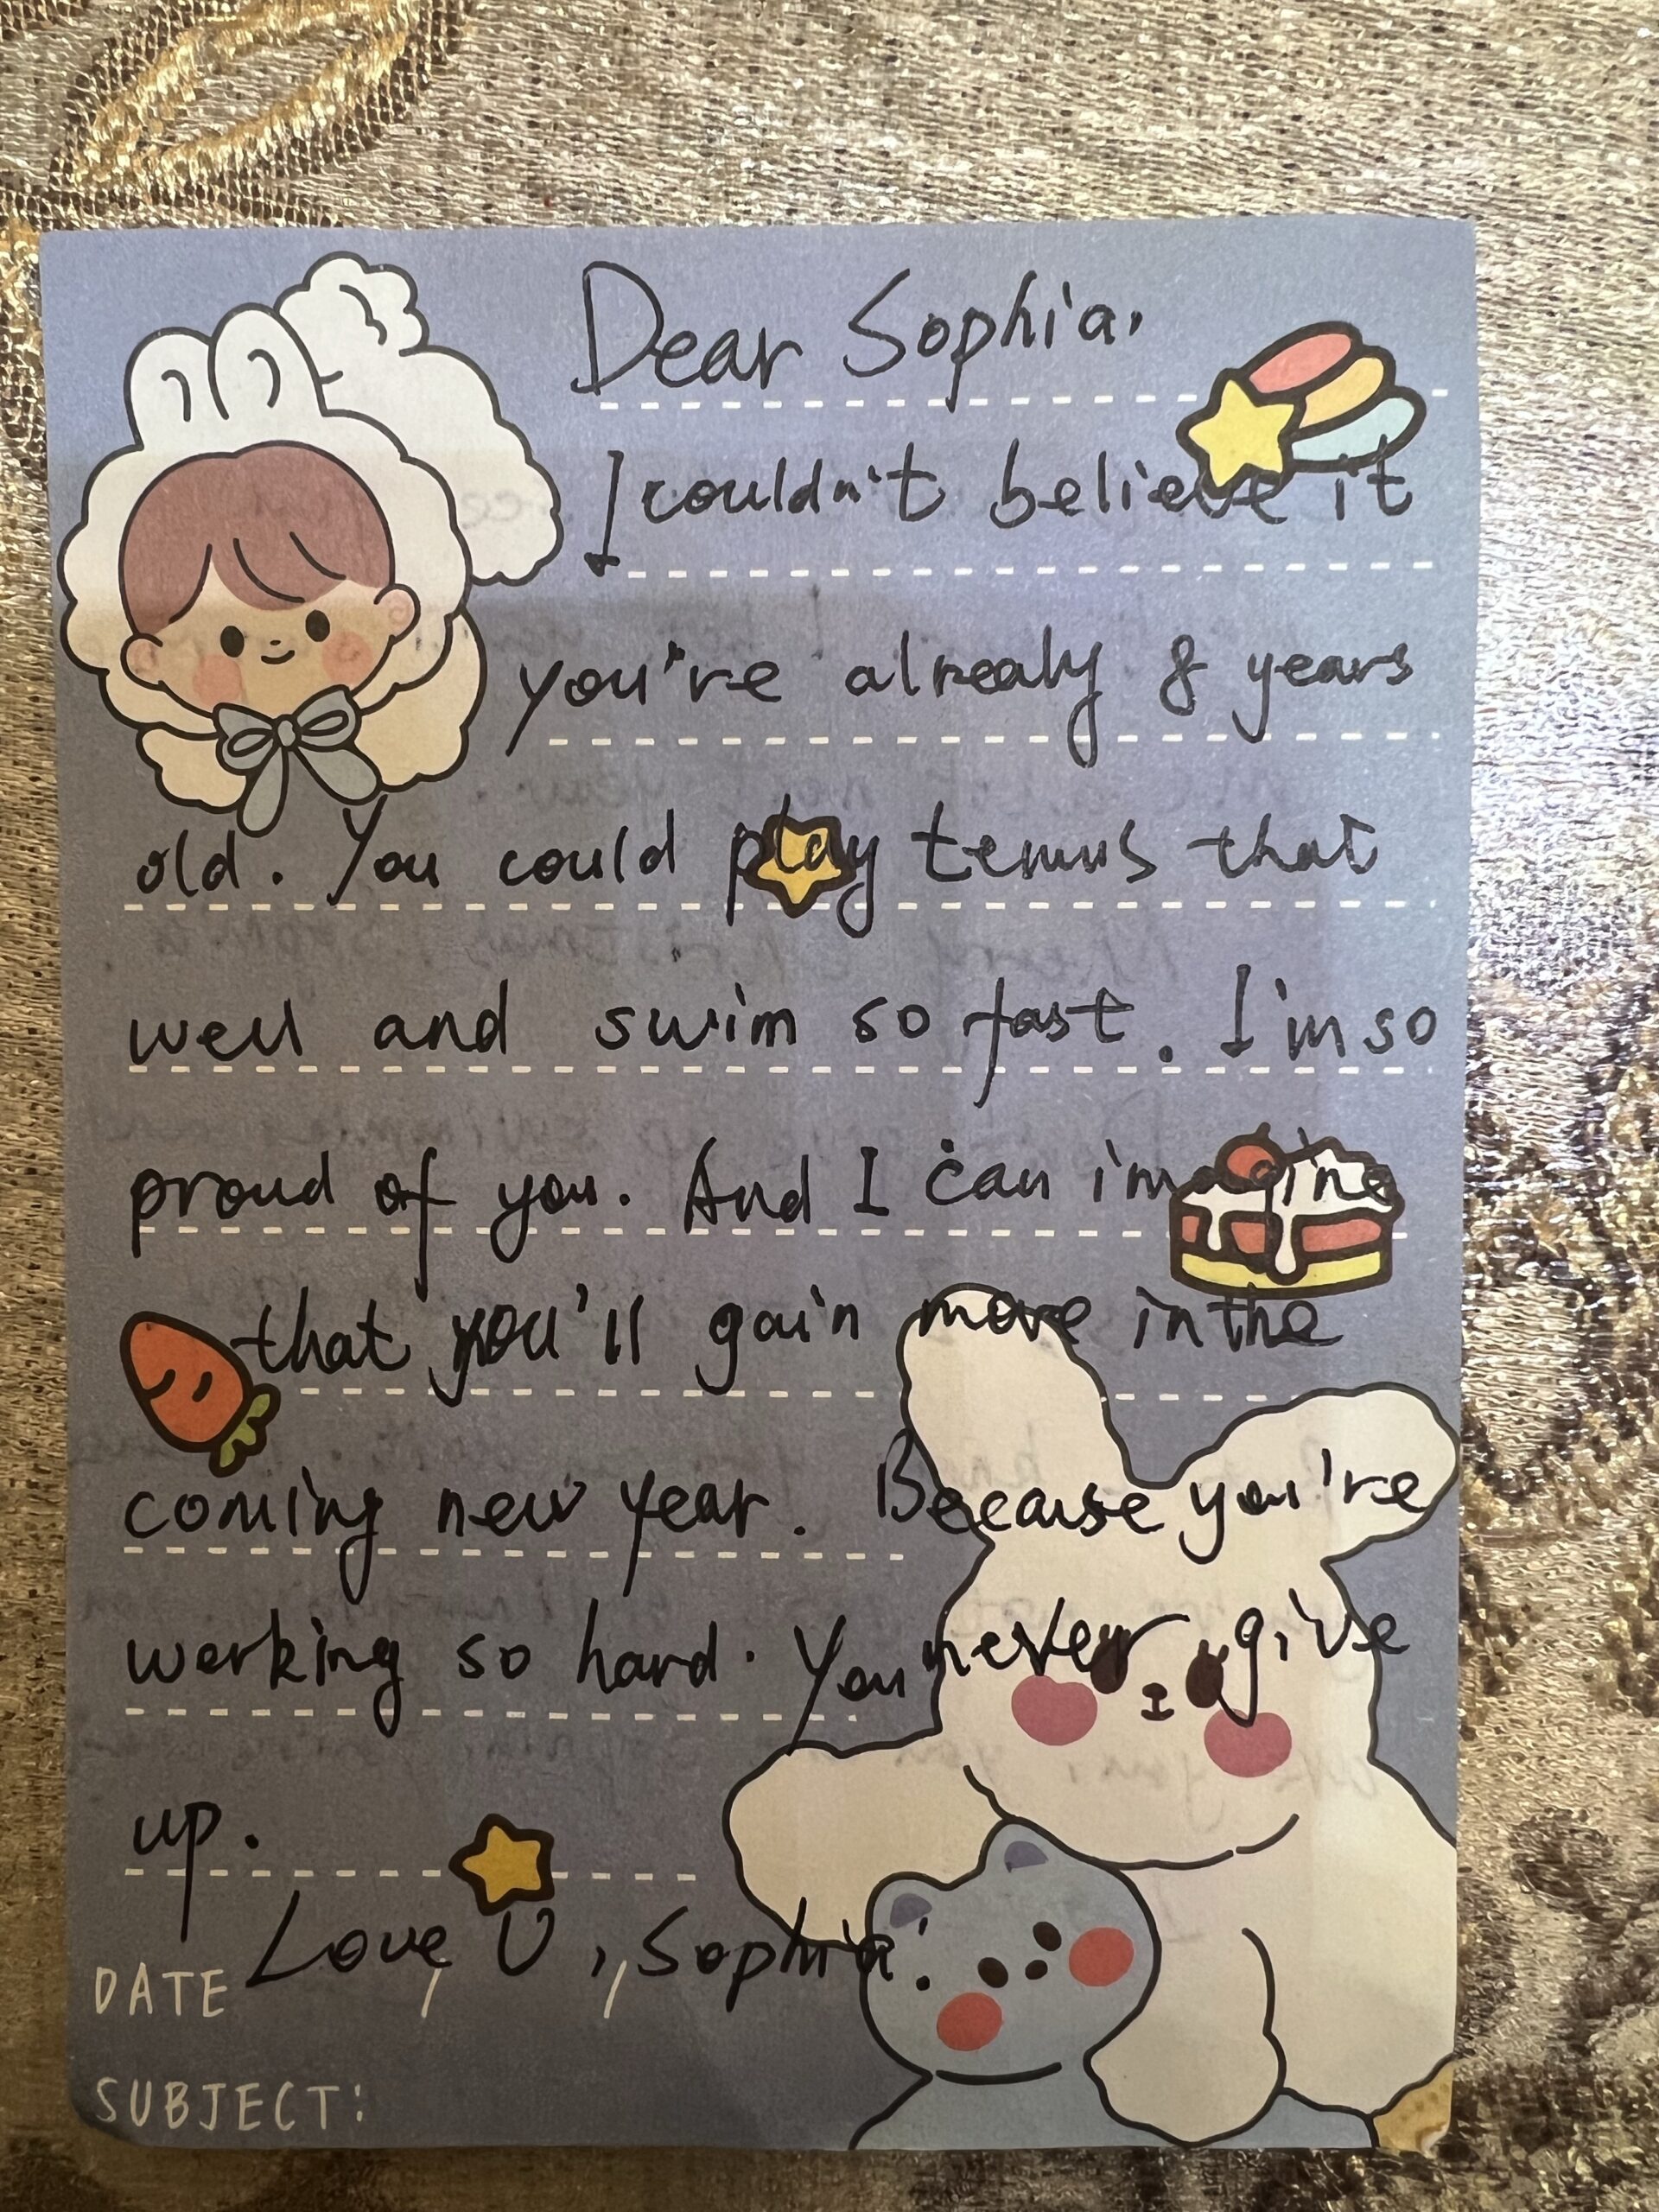 Dear Sophia.
I couldn't believe it
you're alrealy 8 years
old. You could play tennis that
well and swim so fast. I'm so
proud of you. And I can imagine
that you'll gain more in the
coming new year. Because you're
working so hard. You never give
up.
Love U, Sophia.
DATE / /
SUBJECT: